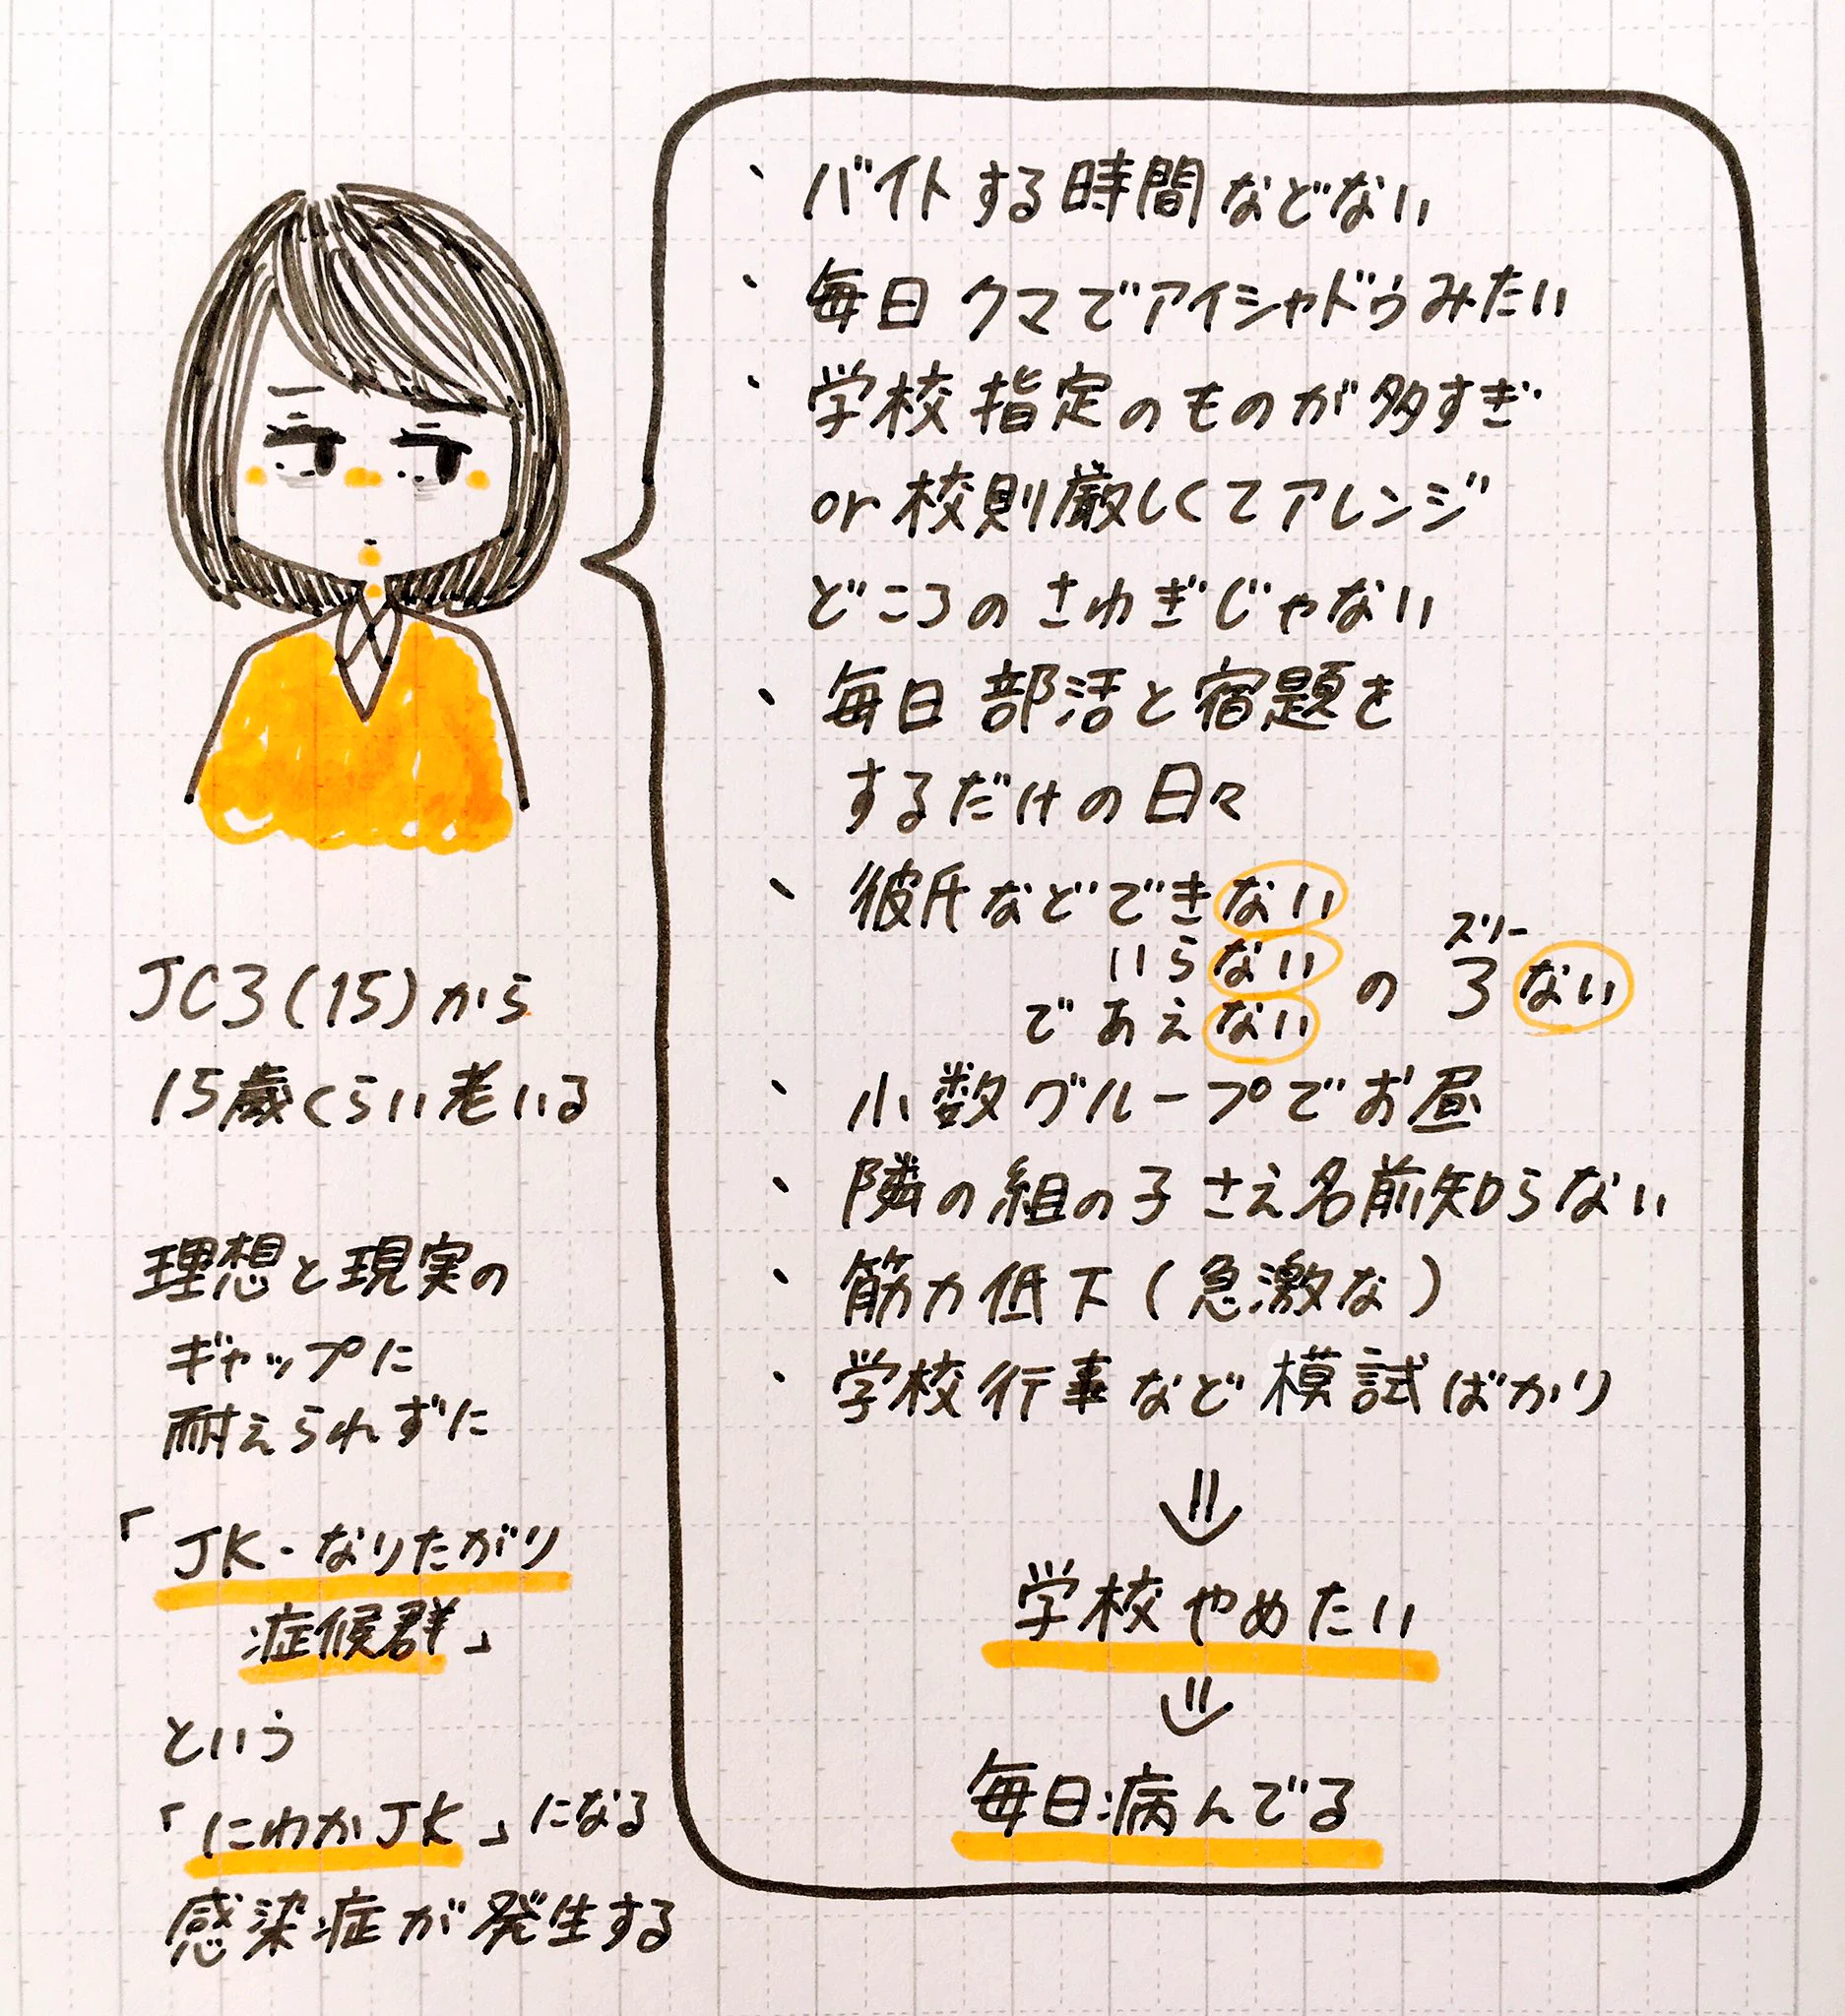 ・バイトする時間などない
・毎日クマでアイシャドウみたい
・学校指定のものが多すぎ
or 校則厳しくてアレンジ
どころのさわぎじゃない
・毎日部活と宿題を
するだけの日々
・彼氏などできない
いらない
であえない
の 3ない
スリー
・小数グループでお昼
・隣の組の子さえ名前知らない
・筋力低下(急激な)
・学校行事など模試ばかり
⇓
学校やめたい
⇓
毎日病んでる
JC3(15)から
15歳くらい老いる
理想と現実の
ギャップに
耐えられずに
「JK・なりたがり
症候群」
という
「にわかJK」になる
感染症が発生する